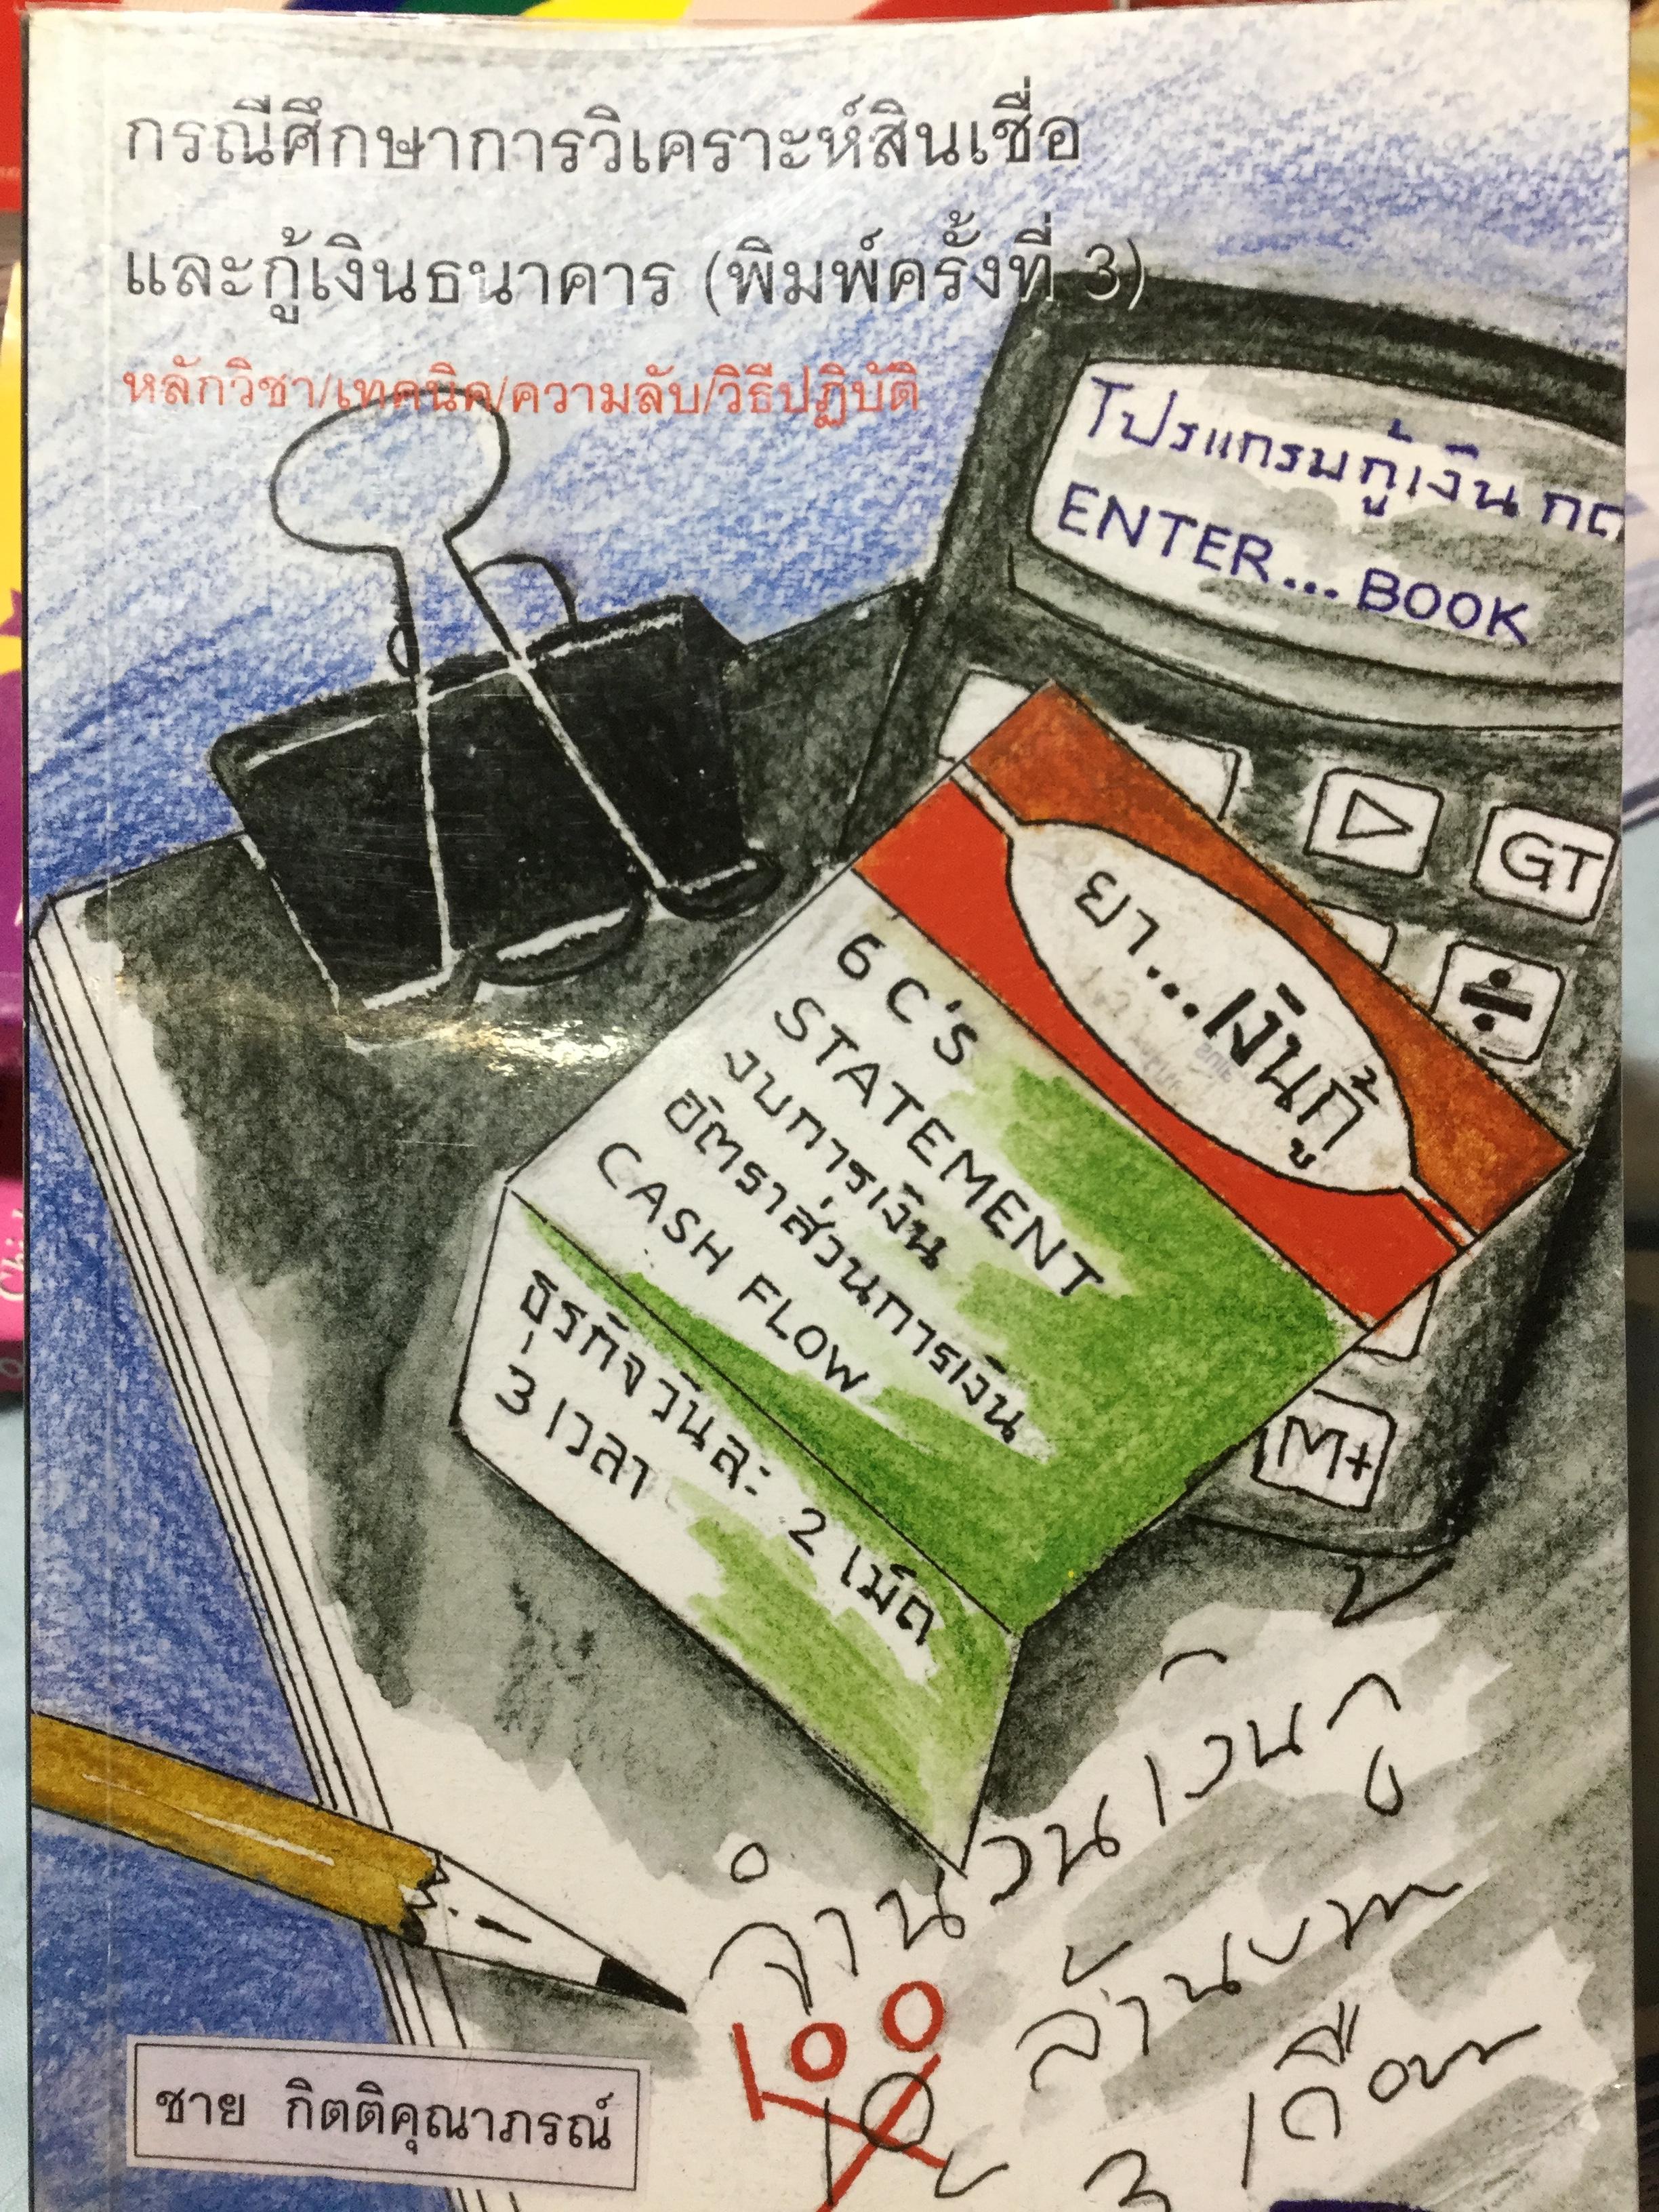 กรณีศึกษาการวิเคราะห์สินเชื่อ
และกู้เงินธนาคาร (พิมพ์ครั้งที่ 3)
หลักวิชา/เทคนิค/ความลับ/วิธีปฏิบัติ
โปรแกรมกู้เงิน กด
ENTER... BOOK
GT
÷
M+
ยา...เงินกู้
6 C'S
STATEMENT
งบการเงิน
อัตราส่วนการเงิน
CASH FLOW
ธุรกิจ วันละ 2 เม็ด
3 เวลา
จำนวนเงินกู้
100
10 ล้านบาท
3 เดือน
ชาย กิตติคุณาภรณ์